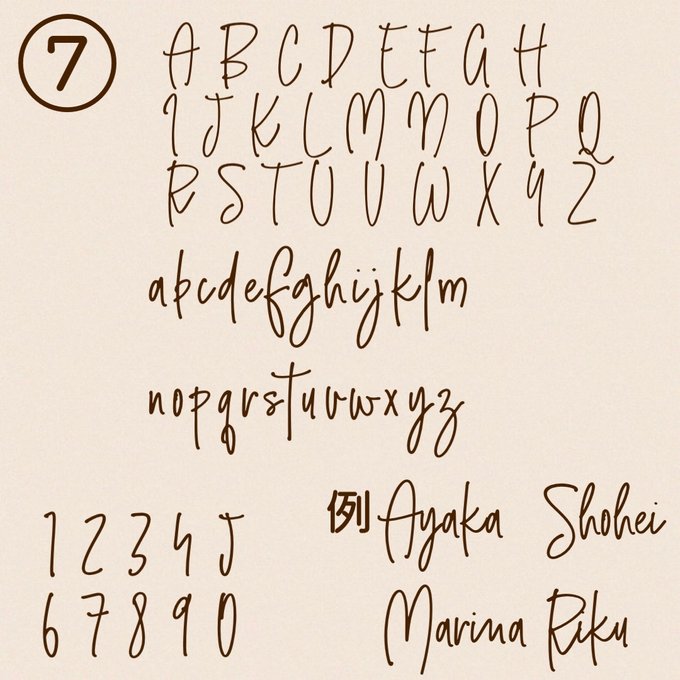 ⑦
A B C D E F G H
I J K L M N O P Q
R S T U V W X Y Z
abcdefghijklm
nopqrstuvwxyz
1 2 3 4 5
6 7 8 9 0
例 Ayaka Shohei
Marina Riku